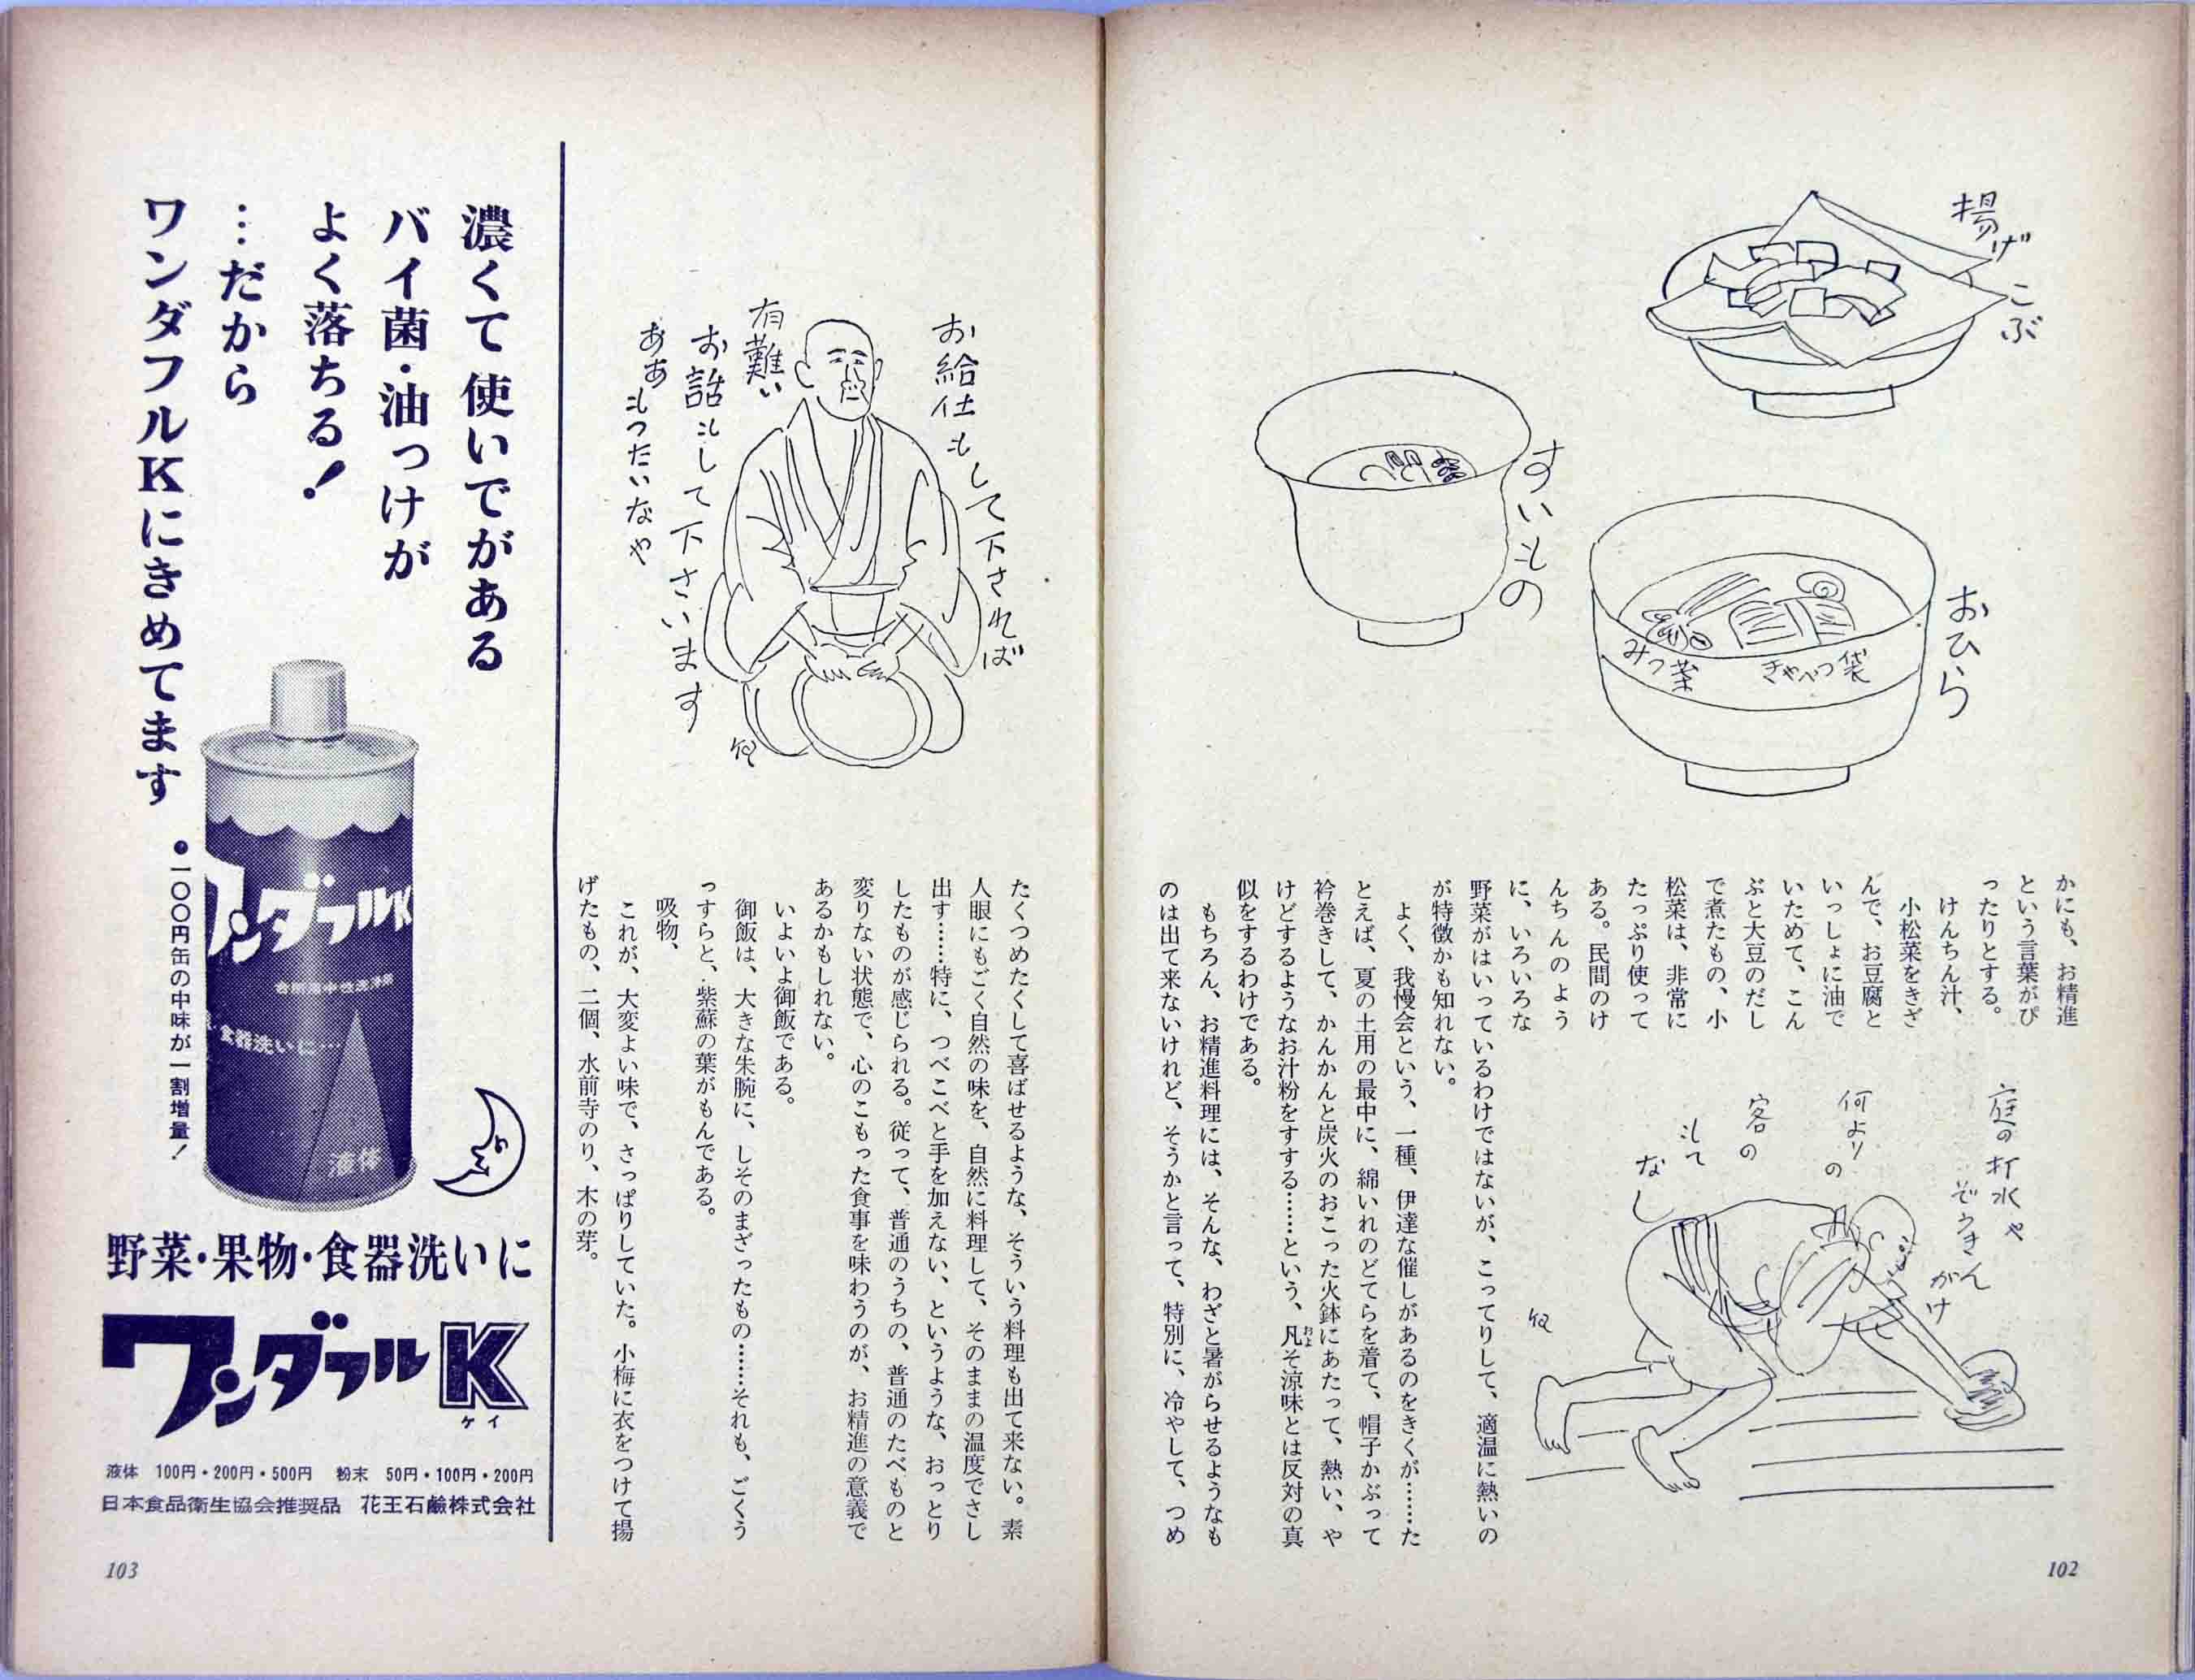 揚げこぶ
おひら
みつ葉
きゃべつ袋
すいもの
かにも、お精進
という言葉がぴ
ったりとする。
けんちん汁、
小松菜をきざ
んで、お豆腐と
いっしょに油で
いためて、こん
ぶと大豆のだし
で煮たもの、小
松菜は、非常に
たっぷり使って
ある。民間のけ
んちんのよう
に、いろいろな
野菜がはいっているわけではないが、こってりして、適温に熱いの
が特徴かも知れない。
よく、我慢会という、一種、伊達な催しがあるのをきくが……た
とえば、夏の土用の最中に、綿いれのどてらを着て、帽子かぶって
衿巻きして、かんかんと炭火のおこった火鉢にあたって、熱い、や
けどするようなお汁粉をすする……という、凡そ涼味とは反対の真
およ
似をするわけである。
もちろん、お精進料理には、そんな、わざと暑がらせるようなも
のは出て来ないけれど、そうかと言って、特別に、冷やして、つめ
庭の打水や
ぞうきんがけ
何よりの
客の
もて
なし
102
お給仕もして下されば
有難い
お話もして下さいます
ああもったいなや
たくつめたくして喜ばせるような、そういう料理も出て来ない。素
人眼にもごく自然の味を、自然に料理して、そのままの温度でさし
出す……特に、つべこべと手を加えない、というような、おっとり
したものが感じられる。従って、普通のうちの、普通のたべものと
変りない状態で、心のこもった食事を味わうのが、お精進の意義で
あるかもしれない。
いよいよ御飯である。
御飯は、大きな朱腕に、しそのまざったもの……それも、ごくう
っすらと、紫蘇の葉がもんである。
吸物、
これが、大変よい味で、さっぱりしていた。小梅に衣をつけて揚
げたもの、二個、水前寺のり、木の芽。
濃くて使いでがある
バイ菌・油っけが
よく落ちる!
…だから
ワンダフルKにきめてます
●一〇〇円缶の中味が一割増量!
ワンダフルK
・食器洗いに…
液体
野菜・果物・食器洗いに
ワンダフルK
ケイ
液体 100円・200円・500円 粉末 50円・100円・200円
日本食品衛生協会推奨品 花王石鹸株式会社
103